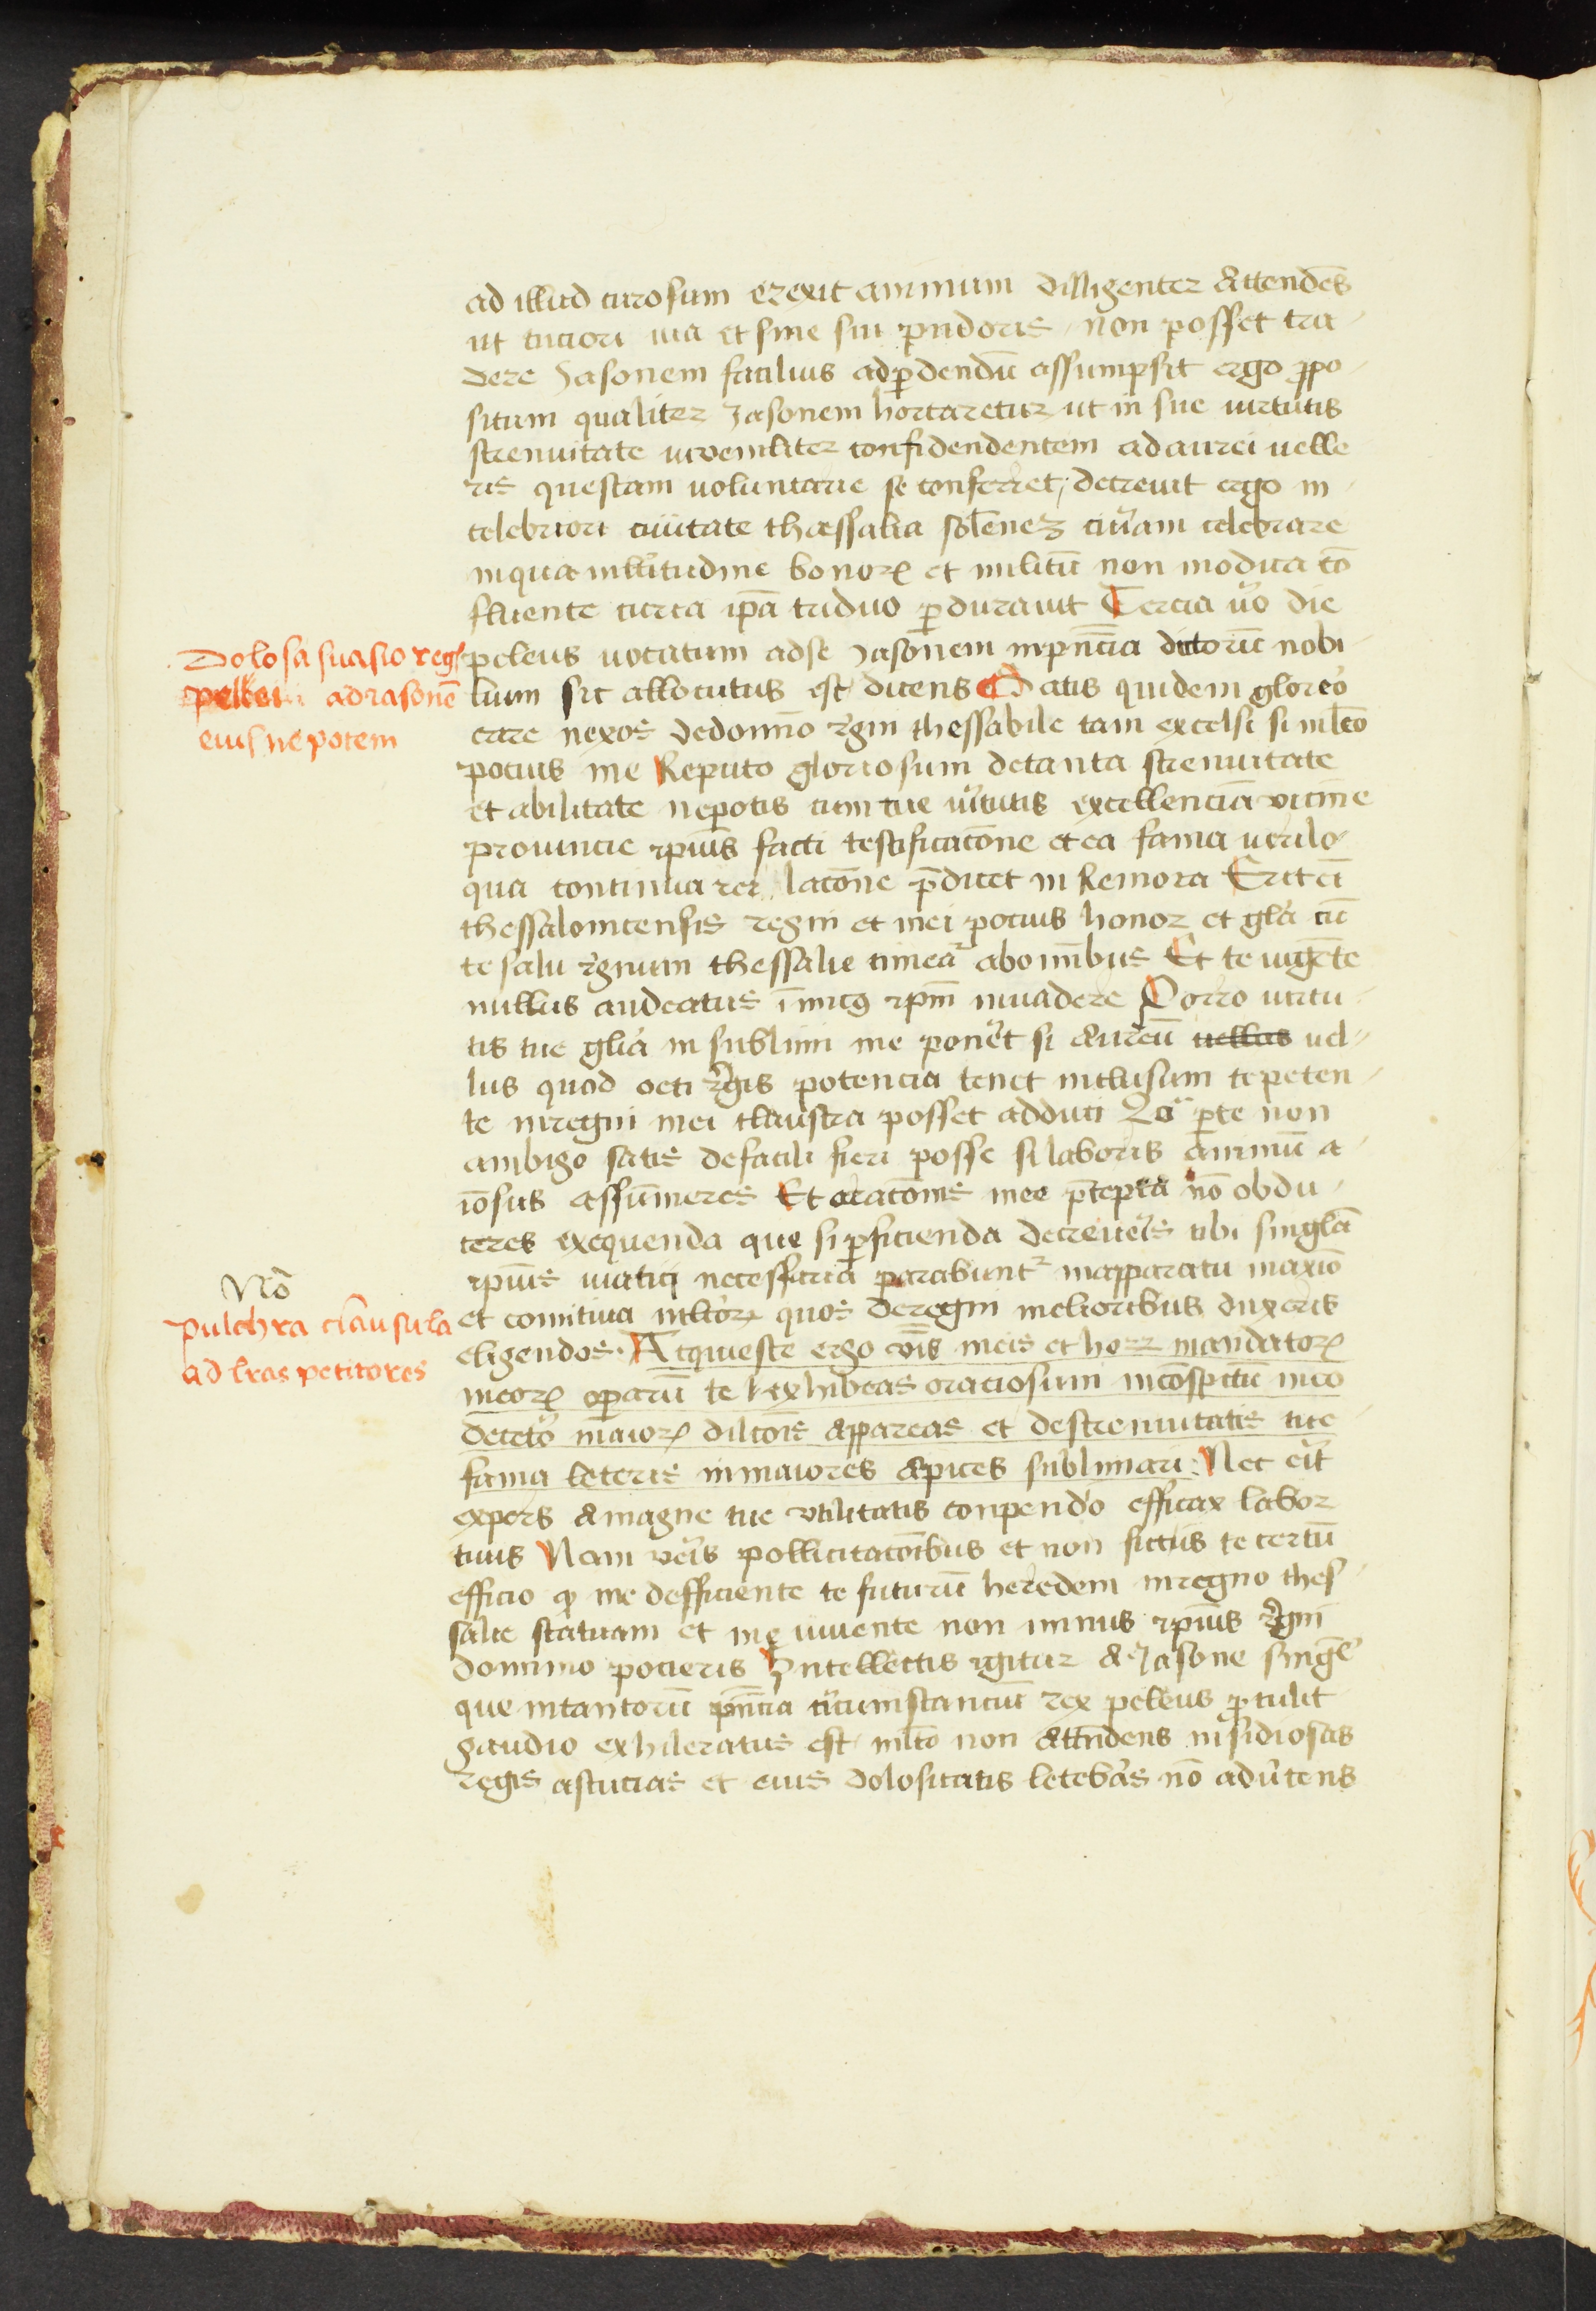 ad illud curosum erexit animum dilligenter attendēs
ut tuciori uia et sine sui pudoris non posset tra
dere Jasonem facilius ad ꝑdendū assumpsit ergo ꝓpo
situm qualiter Jasonem hortaretur ut in sue uirtutis
strenuitate iuueniliter confidendentem ad aurei uelle
ris questam uoluntarie se conferret, decreuit ergo in
celebriori ciuitate thessalia solēnez curiam celebrare
in qua multitudine bonorꝝ et militū non modica cō
fluente curia ipā triduo ꝑdurauit Tercia uo die
Dolosa suasio regis
pellei ad iasonē
eius nepotem
peleus uocatum ad se Jasonem in pn̄cia dictorū nobi
lium sic allocutus est dicens Satis quidem glorio
care nexos de domīo rgni thessabile tam excelsi si mlto
pocius me Reputo gloriosum de tanta strenuitate
et abilitate nepotis cum tue uirtutis excellenciā uicine
prouincie ipīus facti testificatōne et ea fama uerilo
qua continua latōne p̄dicet in Remora Erit ei
thessalonicensis regni et mei pocius honor et gla cū
te saluo rgnum thessalie timeat ab omībus Et te uigēte
nullus audeatus īmicꝯ ipm̄ inuadere Porro uirtu
tis tue glia in sublimi me ponet si Aureū uellas uel
lus quod oeti Rgis potencia tenet inclusum te peten
te in regni mei claustra posset adduci Qd̄ ꝑ te non
ambigo satis de facili fieri posse si laboris animū a
iosus assūmeres Et oratōnis mee p̄cepta nō obdu
ceres exequenda que si ꝑficienda decreueris tibi singla
ipīus uiatici necessaria parabunt in apparatu maxio
Nō
pulchra clausula
ad lras petitores
et comitiua mltorꝝ quos de regni melioribus duxeris
eligendos. Acquiesce ergo uōis meis et horꝝ mandatorꝝ
meorꝝ oparū te exhibeas oraciosum in cōspectu meo
decreto maiorꝝ dilcōis appareas et de strenuitatis tue
fama leteris in maiores Apices sublimari: Nec eit
expers a magne tue utilitatis conpendo efficax labor
tuus Nam ueris pollicitatōibus et non fictis te certū
efficio ꝙ me defficiente te futurū heredem in regno thes
salie statuam et me uiuente non minus ipīus rgni
domino pocieris Intellectis igitur a Jasone singl'
que in tantorū pn̄cia circumstanciū rex peleus ꝓtulit
gaudio exhileratus est mlto non attndens insidiosas
regis astucias et eius dolositatis letebras nō aduertens